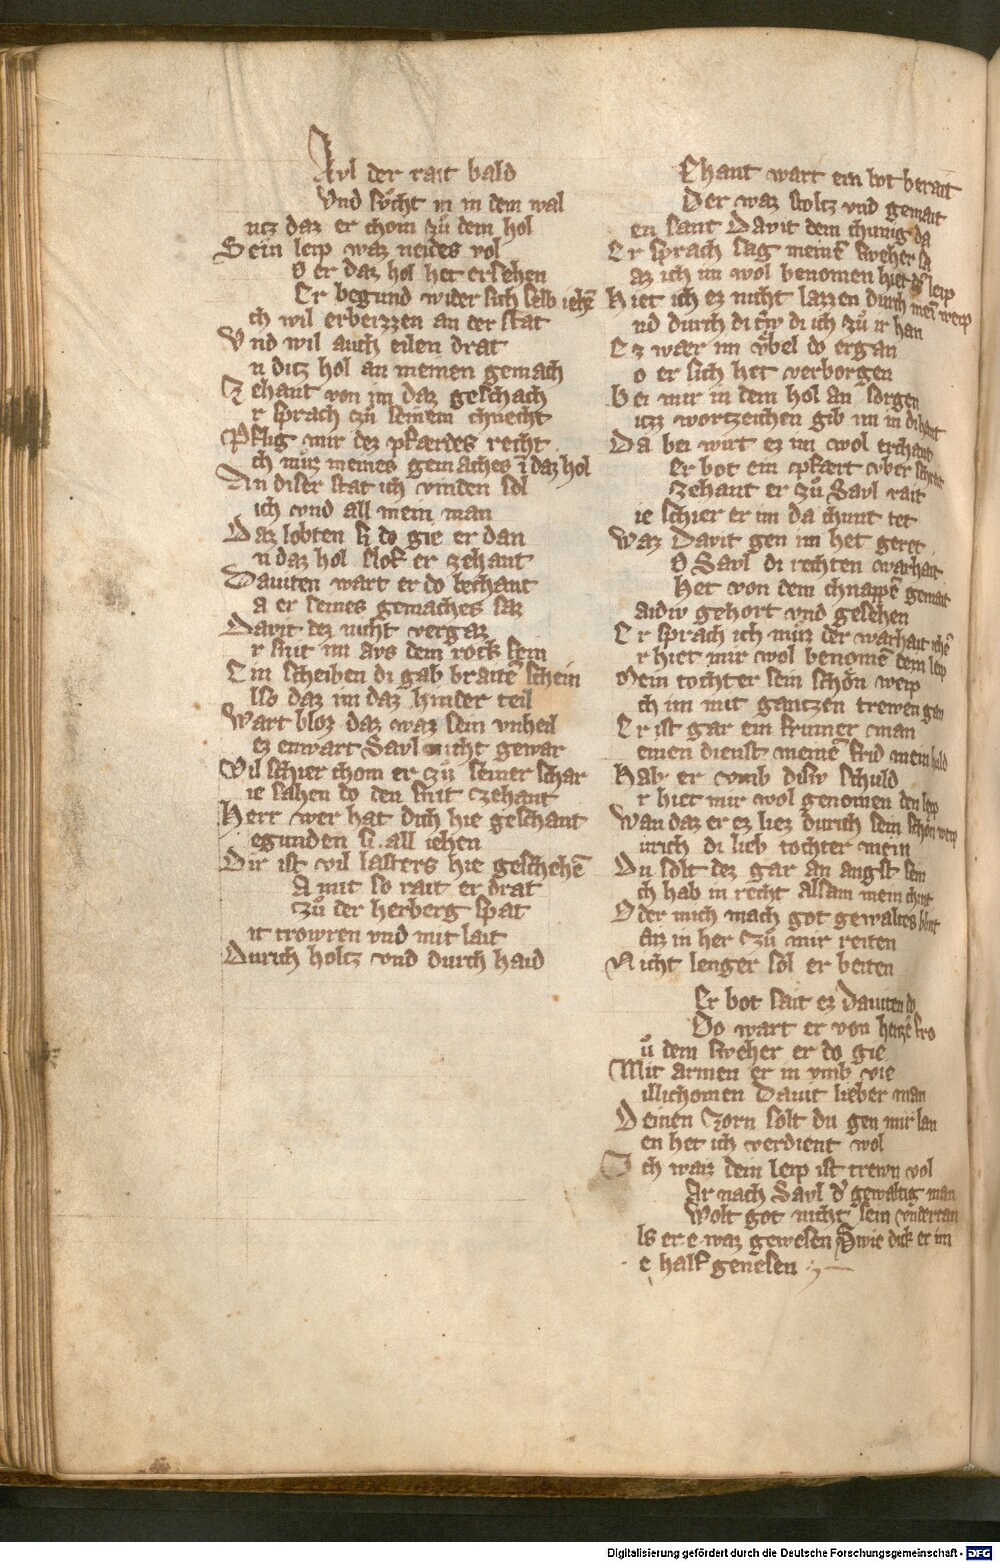 Avl der rait bald
Vnd sůcht in in dem wal
ntz daz er chom zů dem hol
Sein leip waz neides vol
o er daz hol het ersehen
Er begund wider sich selb iehē
ch wil erbeizzen an der stat
Vnd wil auch eilen drat
n ditz hol an meinen gemach
Zehant von im daz geschach
r sprach zů seinem chnecht
Pflig mir dez pfærdes recht
ch můz meines gemaches ī daz hol
An diser stat ich vinden sol
ich vnd all mein man
Daz lobten si do gie er dan
n daz hol slof er zehant
Dauiten wart er do bechant
a er seines gemaches saz
Davit dez nicht vergaz
r snit im avs dem rock sein
Ein scheiben di gab braitē schein
lso daz im daz hinder teil
Wart bloz daz waz sein vnheil
ez enwart Savl nicht gewar
Vil schier chom er zů seiner schar
ie sahen do den snit zehant
Herr wer hat dich hie geschant
egunden si all iehen
Dir ist vil lasters hie geschehē
A mit so rait er drat
zů der herberg spat
it trowren vnd mit lait
Durich holtz vnd durch haid
Ehant wart ein bot berait
Der waz stoltz vnd gemait
en sant Davit dem chunig da
Er sprach sag meinē sweher sa
az ich im wol benomen hiet dē leip
Hiet ich ez nicht lazzen durch mein weip
nd durch di triw di ich zů ir han
Ez wær im vbel do ergan
o er sich het verborgen
Bei mir in dem hol an sorgen
itz wortzeichen gib im in di hant
Da bei wirt ez im wol erchant
Er bot ein pfært vber schrait
Zehant er zů Savl rait
ie schier er im da chunt tet
Waz Davit gen im het geret
O Savl di rechten warhait
Het von dem chnappē gemait
aidiw gehort vnd gesehen
Er sprach ich můz der warhait iehē
r hiet mir wol benomē dem leip
Mein tochter sein schön weip
ch im mit gantzen trewen gan
Er ist gar ein frumer man
einen dienst meinē frid mein huld
Hab er vmb disiv schuld
r hiet mir wol genomen den leip
Wan daz er ez liez durich sein schön weip
urich di lieb tochter mein
Du solt dez gar an angst sein
ch hab in recht alsam mein chint
Oder mich mach got gewaltes blint
az in her zů mir reiten
Nicht lenger sol er beiten
Er bot sait ez Dauiten do
Do wart er von herzē fro
ů dem sweher er do gie
Mit armen er in vmb vie
illichomen Dauit lieber man
Deinen zorn solt du gen mir lan
en het ich verdient wol
Ich waiz dein leip ist trewn vol
Ar nach Savl d' gewaltig man
Wolt got nicht sein vndertan
ls er e waz gewesen Swie dick er im
e half genesen
Digitalisierung gefördert durch die Deutsche Forschungsgemeinschaft - DFG